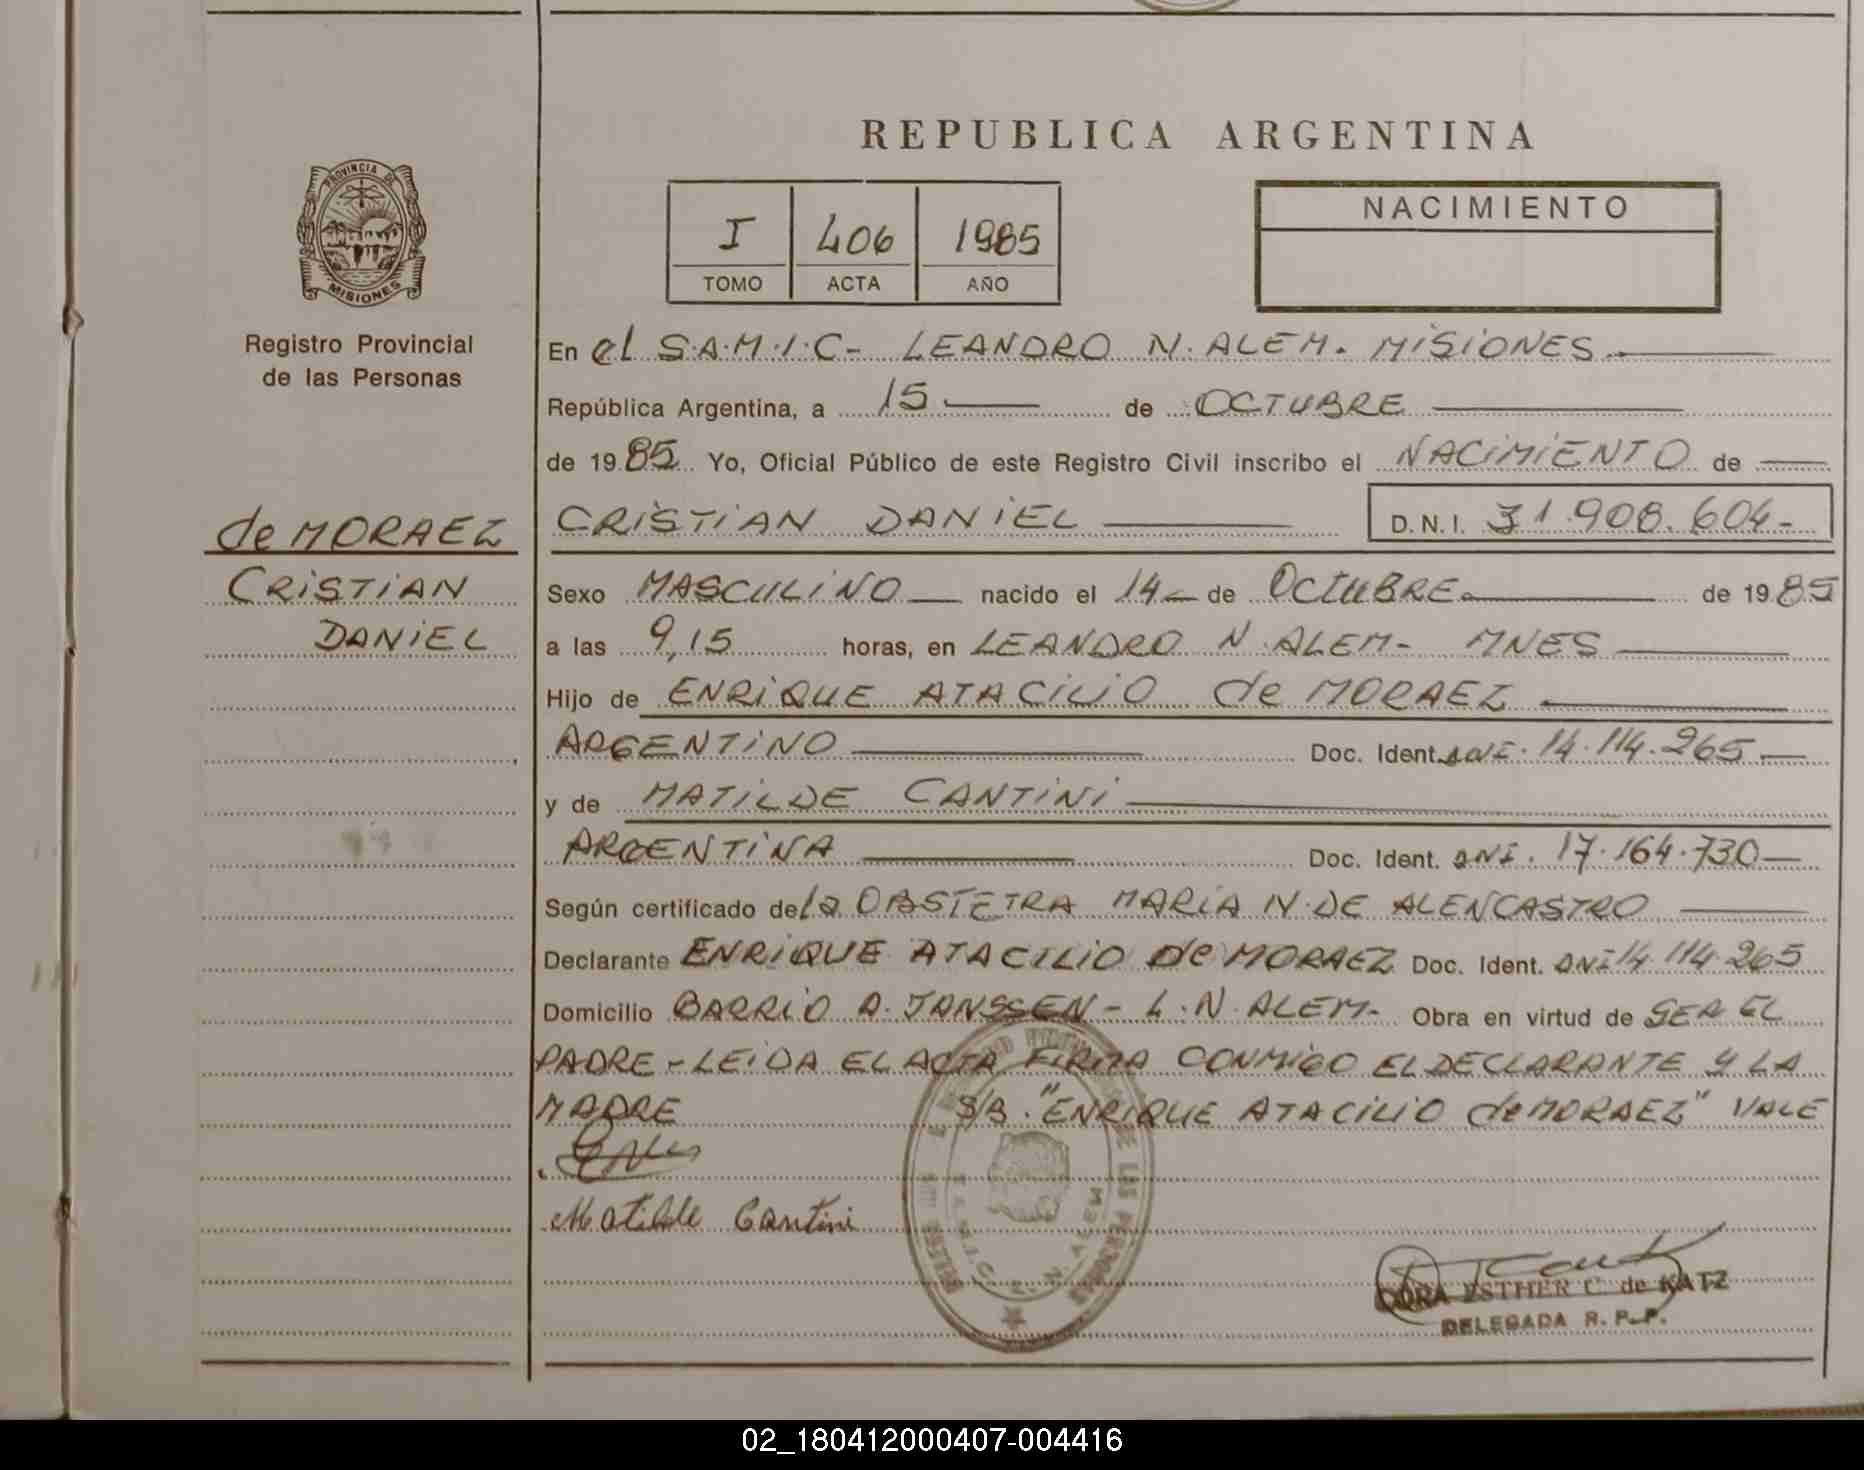 REPUBLICA ARGENTINA
PROVINCIA DE
MISIONES
I 406 1985
TOMO ACTA AÑO
NACIMIENTO
Registro Provincial
de las Personas
En el S.A.M.I.C- LEANDRO N. ALEM. MISIONES
República Argentina, a 15 de OCTUBRE
de 1985 Yo, Oficial Público de este Registro Civil inscribo el NACIMIENTO de
de MORAEZ
CRISTIAN
DANIEL
CRISTIAN DANIEL D.N.I. 31.908.604-
Sexo MASCULINO nacido el 14 de OCTUBRE de 1985
a las 9,15 horas, en LEANDRO N. ALEM- MNES
Hijo de ENRIQUE ATACILIO de MORAEZ
ARGENTINO Doc. Ident. DNI. 14.114.265
y de MATILDE CANTINI
ARGENTINA Doc. Ident. DNI. 17.164.730
Según certificado de la OBSTETRA MARIA N. DE ALENCASTRO
Declarante ENRIQUE ATACILIO de MORAEZ Doc. Ident. DNI 14.114.265
Domicilio BARRIO A. JANSSEN - L.N. ALEM- Obra en virtud de SER EL
PADRE - LEIDA EL ACTA FIRMA CONMIGO EL DECLARANTE Y LA
MADRE S/B. "ENRIQUE ATACILIO de MORAEZ" VALE
Matilde Cantini
DORA ESTHER C. de KATZ
DELEGADA R. P. P.
02_180412000407-004416